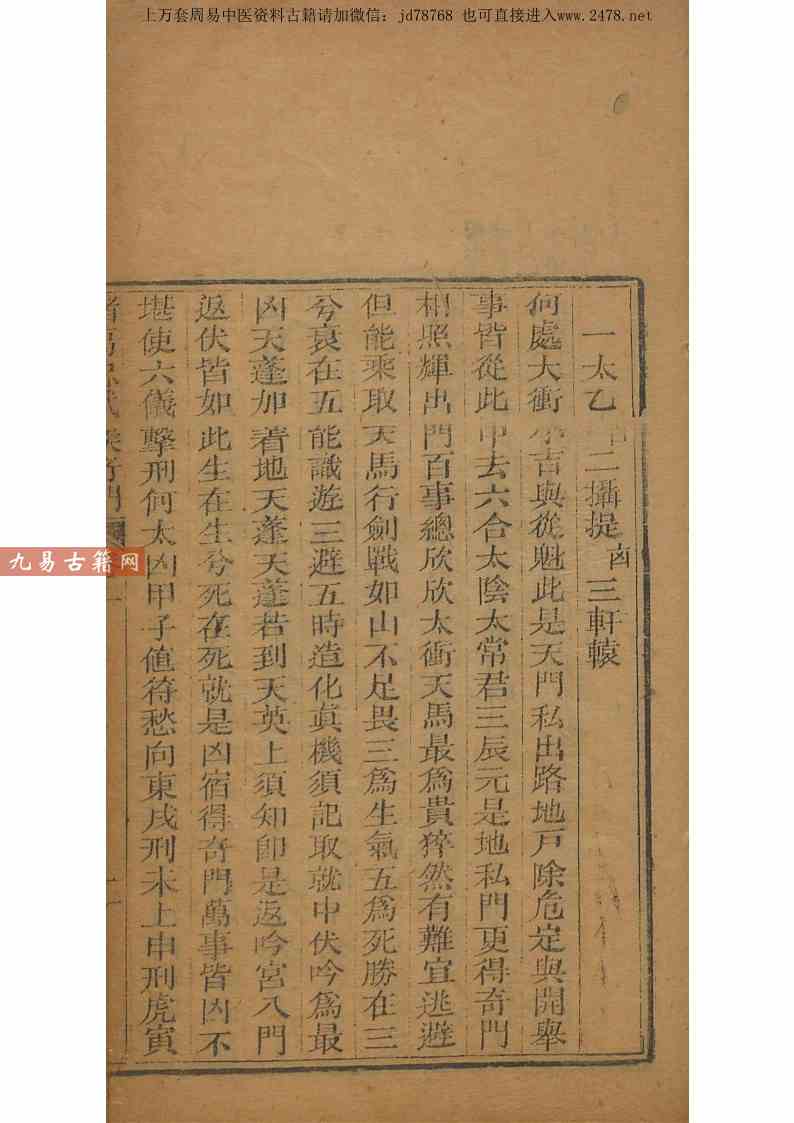 上万套周易中医资料古籍请加微信：jd78768 也可直接进入www.2478.net
一太乙 二攝提酉 三軒轅
何處大衝小吉與從魁此是天門私出路地戸除危定與開舉
事皆從此中去六合太陰太常君三辰元是地私門更得奇門
相照輝出門百事總欣欣太衝天馬最爲貴猝然有難宜逃避
但能乘取天馬行劍戰如山不足畏三爲生氣五爲死勝在三
兮衰在五能識遊三避五時造化眞機須記取就中伏吟爲最
凶天蓬加着地天蓬天蓬若到天英上須知卽是返吟宮入門
返伏皆如此生在生兮死在死就是凶宿得奇門萬事皆凶不
堪使六儀擊刑何太凶甲子値符愁向東戌刑未上申刑虎寅
九易古籍网